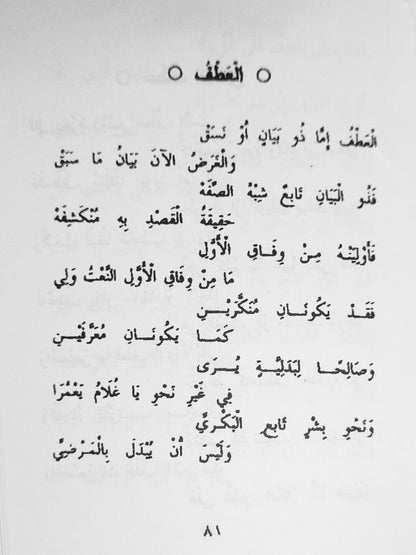 ○ الْعَطْفُ ○
الْعَطْفُ إِمَّا ذُو بَيَانٍ أَوْ نَسَقْ
وَالْغَرَضُ الْآنَ بَيَانُ مَا سَبَقْ
فَذُو الْبَيَانِ تَابِعٌ شِبْهُ الصِّفَهْ
حَقِيقَةُ الْقَصْدِ بِهِ مُنْكَشِفَهْ
فَأَوْلِيَنْهُ مِنْ وِفَاقِ الْأَوَّلِ
مَا مِنْ وِفَاقِ الْأَوَّلِ النَّعْتُ وَلِي
فَقَدْ يَكُونَانِ مُنَكَّرَيْنِ
كَمَا يَكُونَانِ مُعَرَّفَيْنِ
وَصَالِحًا لِبَدَلِيَّةٍ يُرَى
فِي غَيْرِ نَحْوِ يَا غُلَامُ يَعْمُرَا
وَنَحْوِ بِشْرٍ تَابِعِ الْبَكْرِيِّ
وَلَيْسَ أَنْ يُبْدَلَ بِالْمَرْضِيِّ
٨١